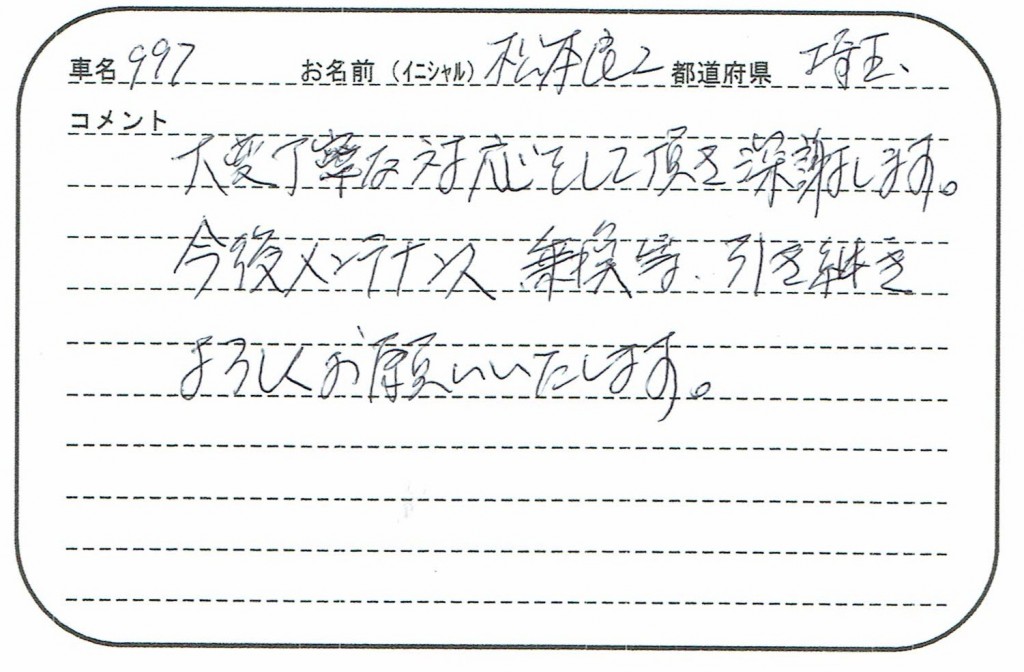 車名 997 お名前（イニシャル） 松本良二 都道府県 埼玉
コメント
大変丁寧な対応をして頂き深謝します。
今後メンテナンス 乗換等、引き継き
よろしくお願いいたします。